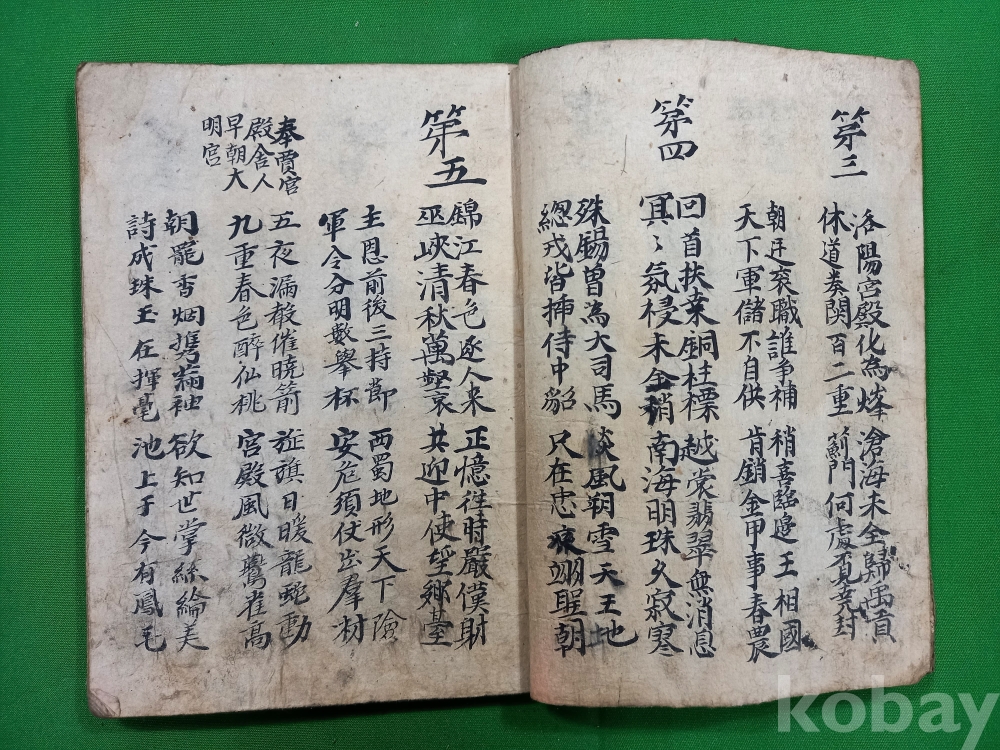 第三
洛陽宮殿化為烽 滄海未全歸禹貢
休道秦関百二重 薊門何處覓堯封
朝廷衮職誰爭補 稍喜臨邊王相國
天下軍儲不自供 肯銷金甲事春農
第四
回首扶桒銅柱標 越裳翡翠無消息
冥〻氛祲未全稍 南海明珠久寂寥
殊錫曾為大司馬 炎風朔雪天王地
緫戎皆揷侍中貂 只在忠良翊聖朝
第五
錦江春色逐人来 正憶往時嚴僕射
巫峽清秋萬壑哀 共迎中使望鄉臺
主恩前後三持節 西蜀地形天下險
軍令分明數舉杯 安危須仗出羣材
奉賈官
殿舍人
早朝大
明宮
五夜漏聲催曉箭 旌旗日暖龍蛇動
九重春色醉仙桃 宮殿風微鷰雀高
朝罷香烟携滿袖 欲知世掌絲綸美
詩成珠玉在揮毫 池上于今有鳳毛
kobay